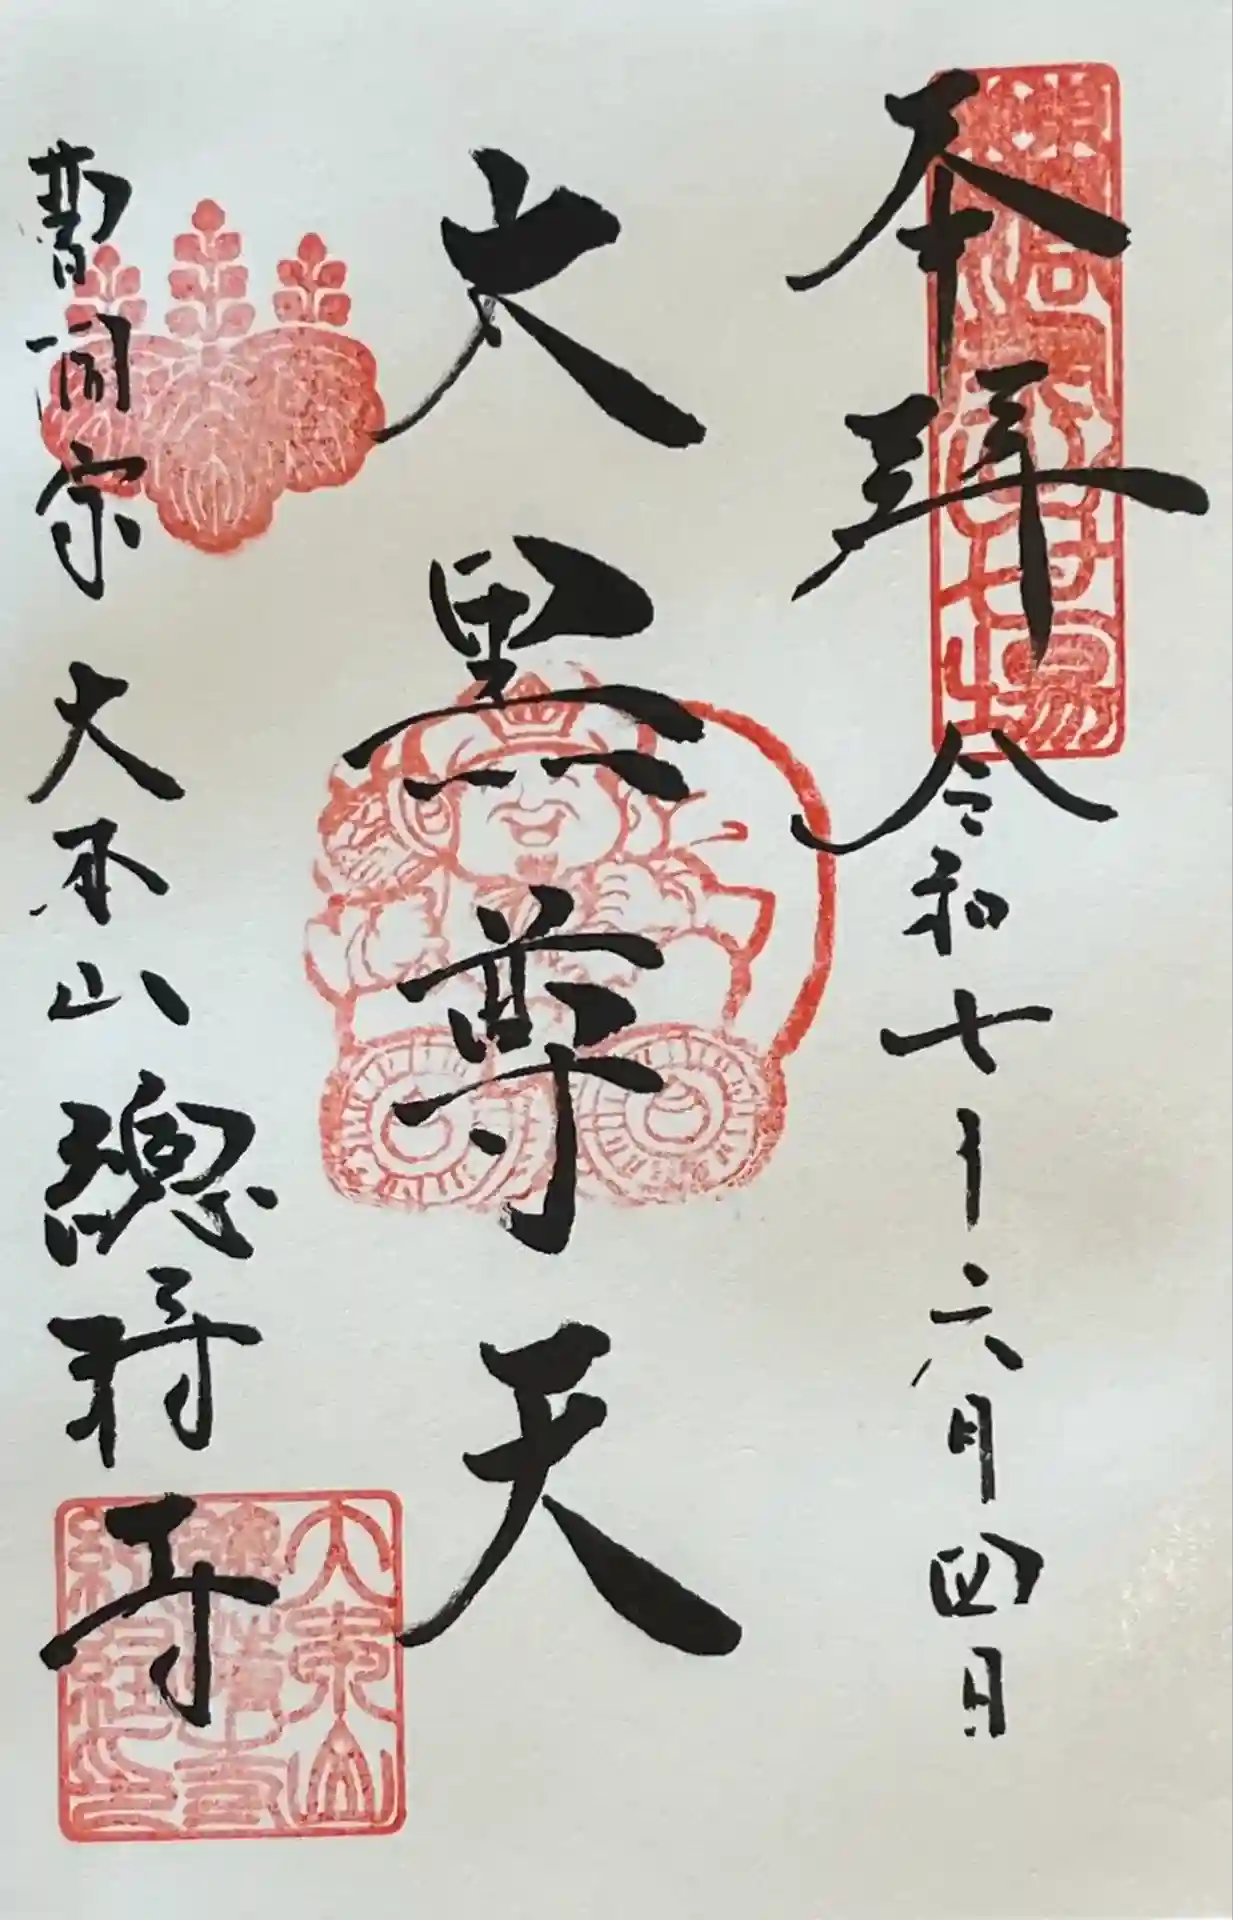 奉拝 令和七年六月四日
大黒尊天
曹洞宗 大本山 總持寺
大本山
總持寺
納経之印